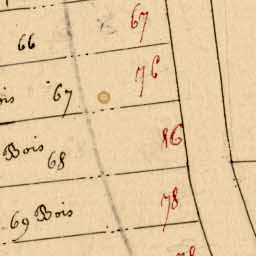 67
66
76
67
86
Bois
68
78
69 Bois